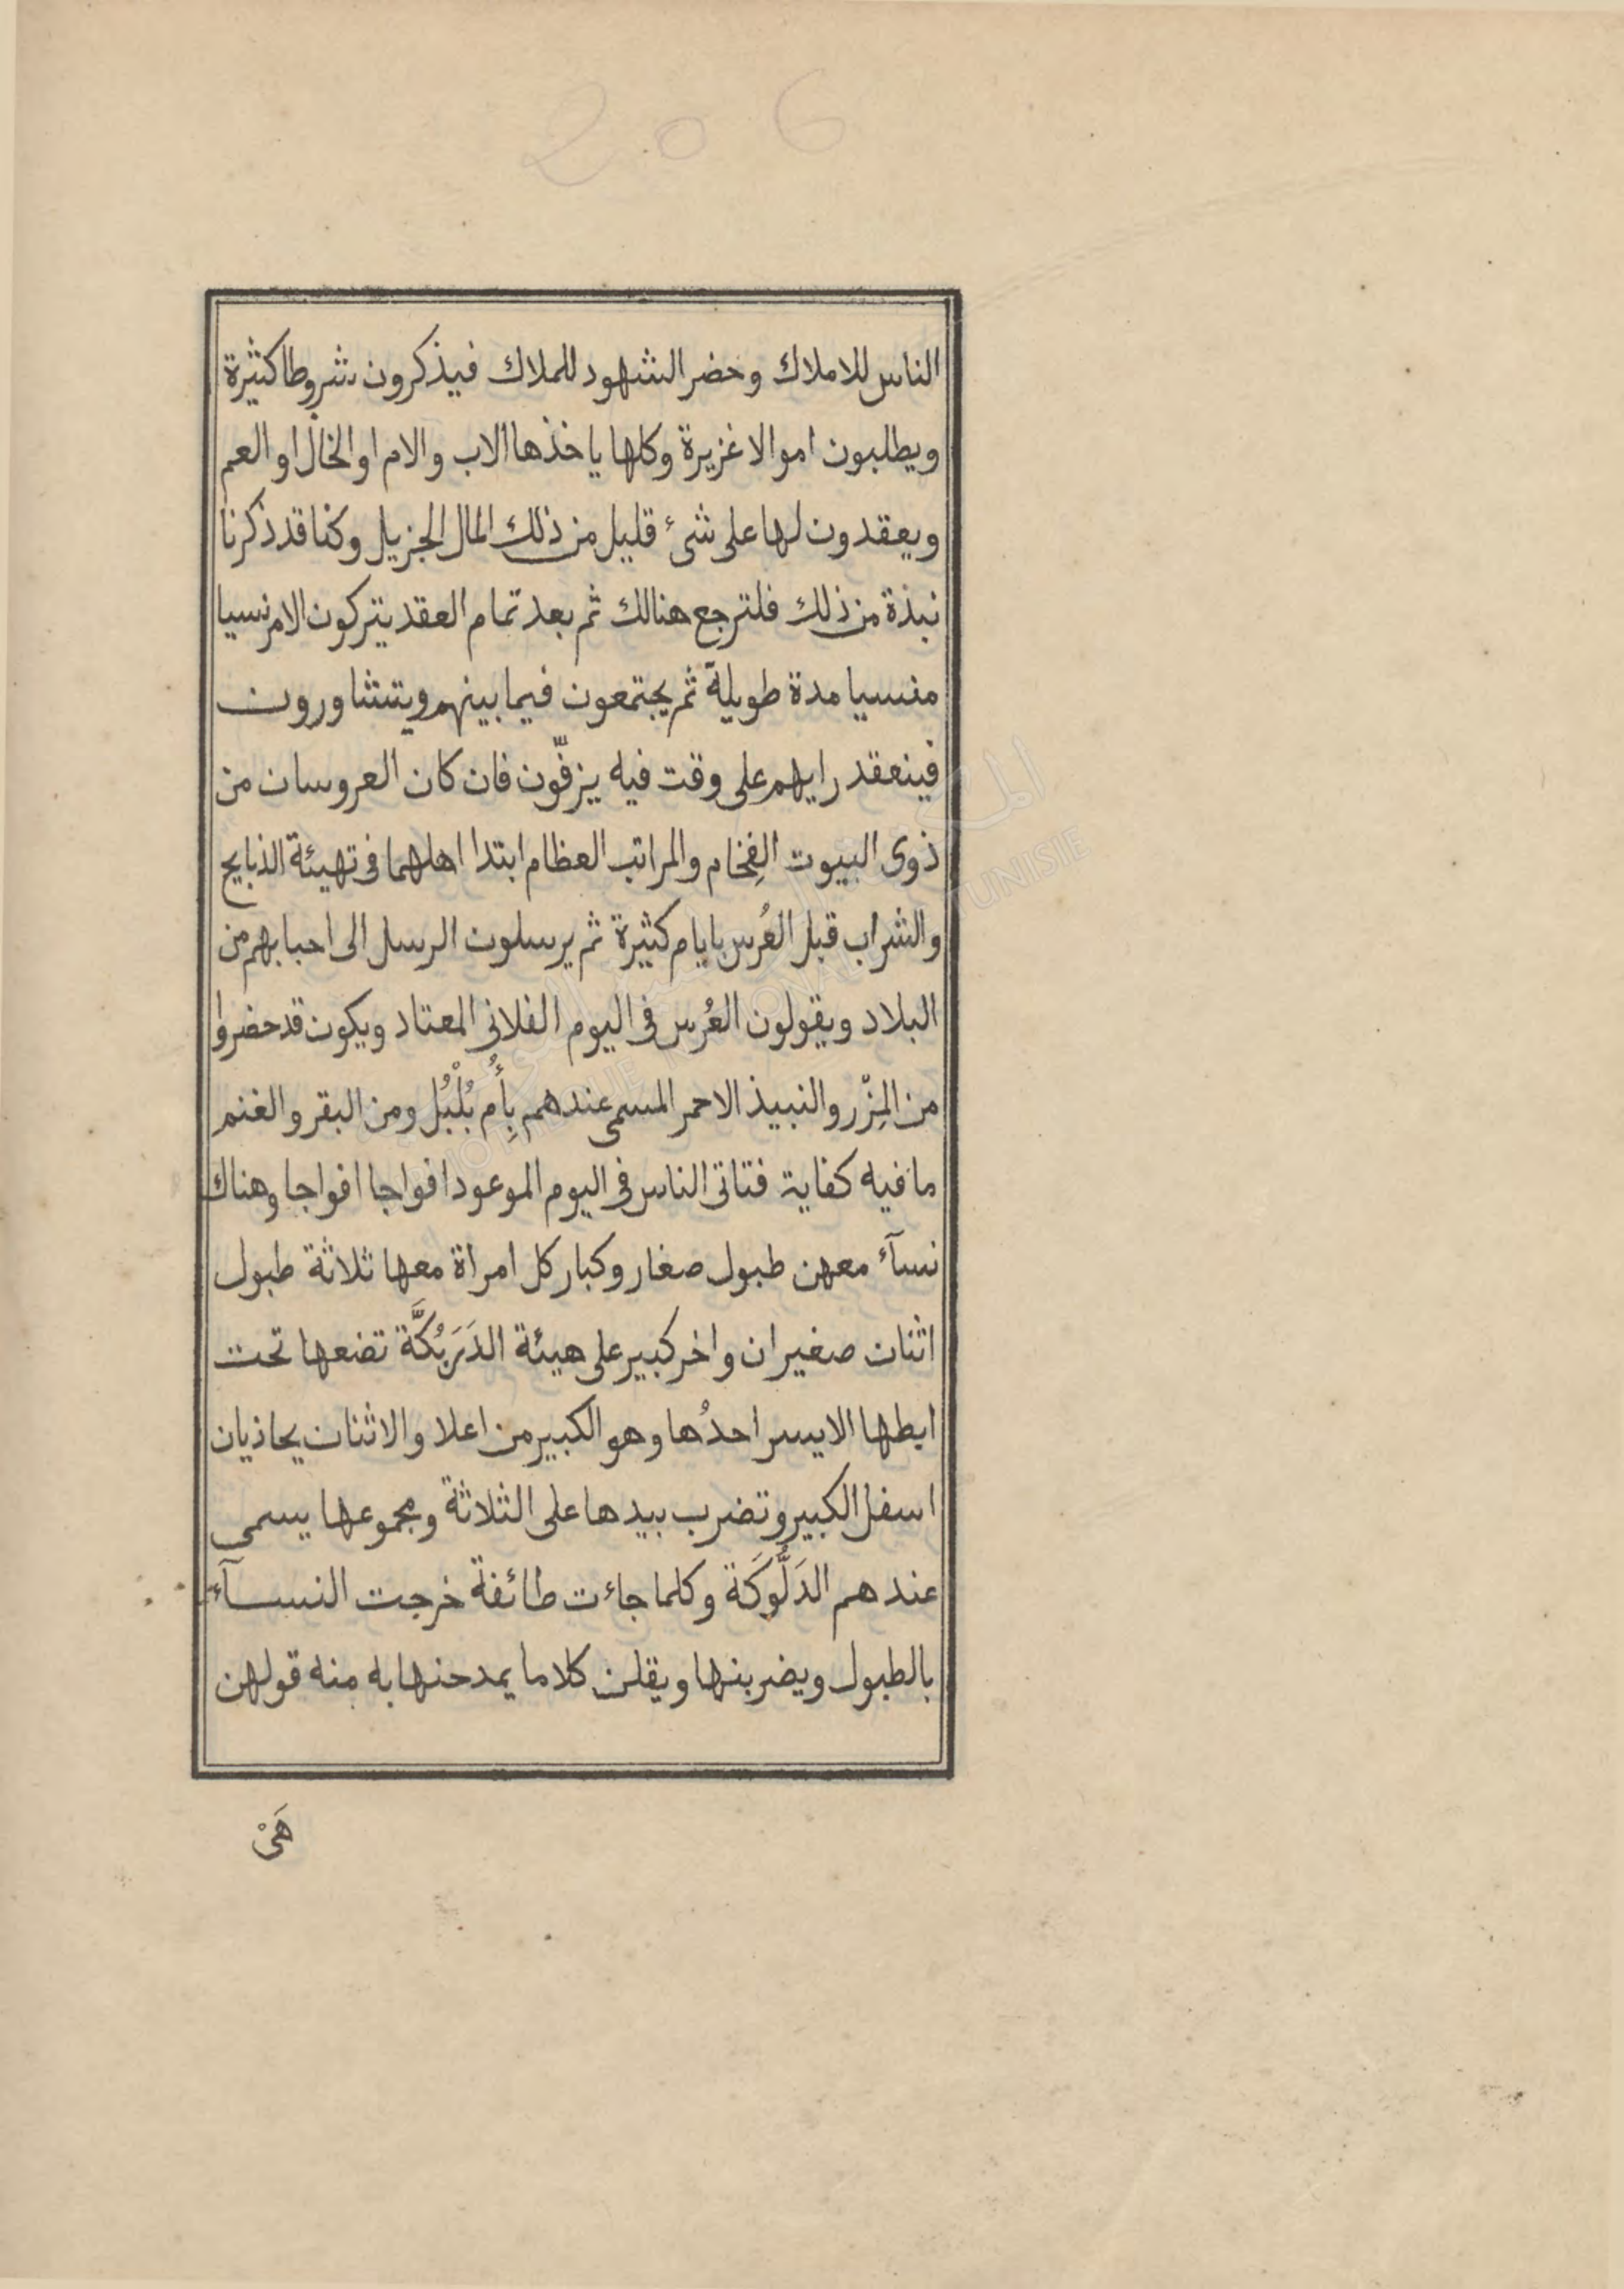 206
الناس للاملاك وحضر الشهود للملاك فيذكرون شروطا كثيرة
ويطلبون اموالا غزيرة وكلها ياخذها الاب والام او الخال او العم
ويعقدون لها على شئ قليل من ذلك المال الجزيل وكنا قد ذكرنا
نبذة من ذلك فلترجع هنالك ثم بعد تمام العقد يتركون الامر نسيا
منسيا مدة طويلة ثم يجتمعون فيما بينهم ويتشاورون
فينعقد رايهم على وقت فيه يزفّون فان كان العروسان من
ذوى البيوت الفِخام والمراتب العظام ابتدا اهلهما فى تهيئة الذبايح
والشراب قبل العُرس بايام كثيرة ثم يرسلون الرسل الى احبابهم من
البلاد ويقولون العُرس فى اليوم الفلانى المعتاد ويكون قد حضروا
من المِزْر والنبيذ الاحمر المسمى عندهم بِأُم بُلْبُل ومن البقر والغنم
ما فيه كفاية فتاتى الناس فى اليوم الموعود افواجا افواجا وهناك
نسآء معهن طبول صغار وكبار كل امراة معها ثلاثة طبول
اثنان صغيران واخر كبير على هيئة الدَرَبُكَّة تضعها تحت
ابطها الايسر احدُها وهو الكبير من اعلا والاثنان يحاذيان
اسفل الكبير وتضرب بيدها على الثلاثة ومجموعها يسمى
عندهم الدَلُّوكَة وكلما جاءت طائفة خرجت النسآء
بالطبول ويضربنها ويقلن كلاما يمدحنها به منه قولهن
هَىْ
TUNISIE